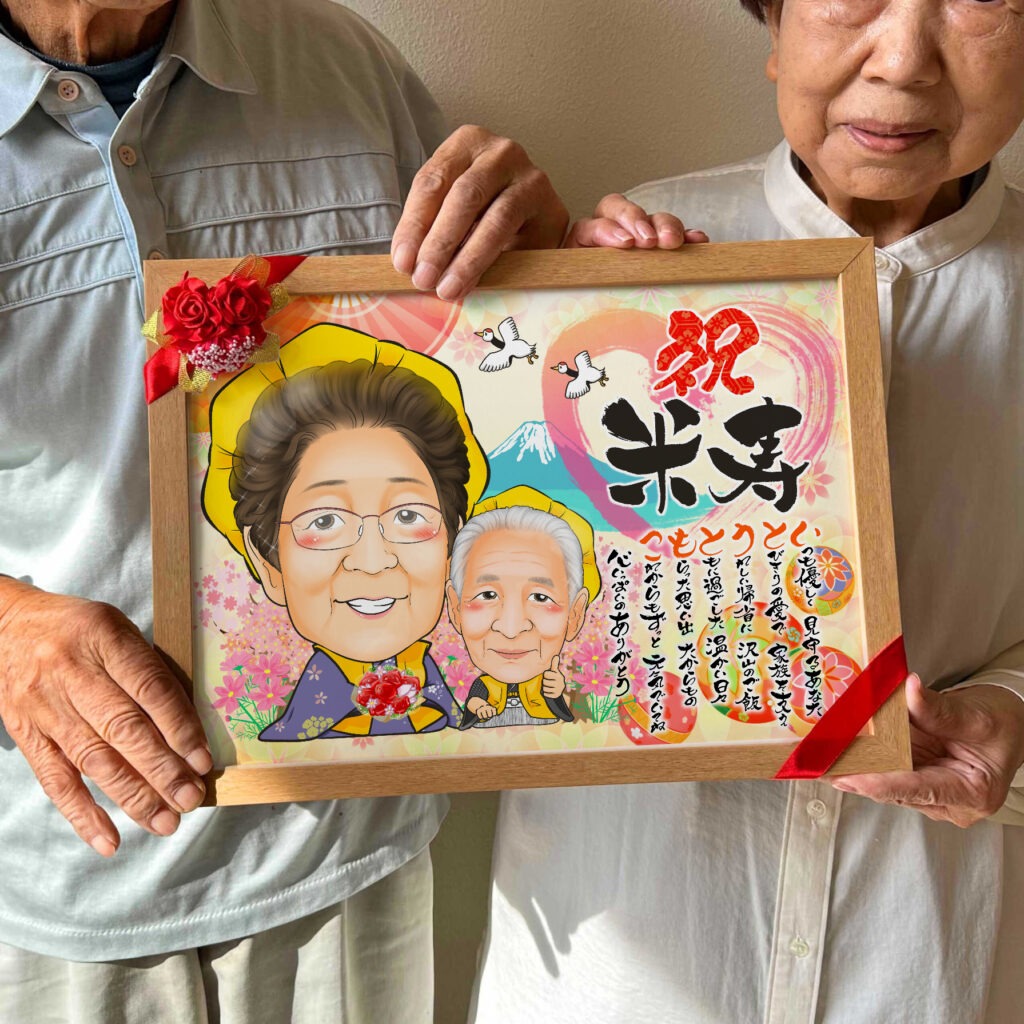 祝
米寿
いつも優しく 見守るあなた
とびきりの愛で 家族を支え
うれしい帰省に 沢山のご飯
ともに過ごした 温かい日々
もらった思い出 たからもの
これからもずっと 元気でいてね
心いっぱいのありがとう